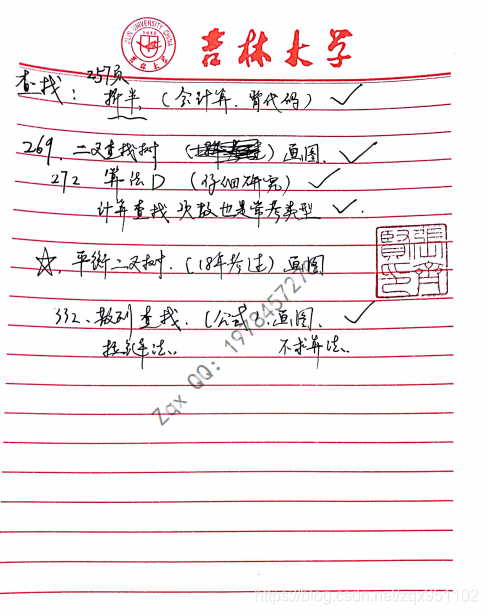 JILIN UNIVERSITY CHINA
吉林大学
257页
查找: 折半. (会计算. 背代码) ✓
269. 二叉查找树 () 画图. ✓
272 算法D (仔细研究) ✓
计算查找次数也是常考类型 ✓.
☆. 平衡二叉树. (18年考过) 画图
332. 散列查找. (公式). 画图. ✓
拉链法.. 不求算法..
Zqx QQ: 1978457270
https://blog.csdn.net/zqx951102